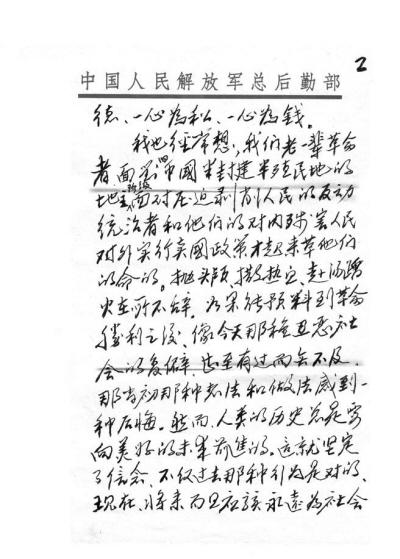 2
中国人民解放军总后勤部
德、一心为私、一心为钱。
我也经常想,我们老一辈革命
者面对旧中国半封建半殖民地的
地主阶级面对压迫剥削人民的反动
统治者和他们的对内残害人民
对外实行卖国政策才起来革他们
的命的。抛头颅、撒热血、赴汤蹈
火在所不辞。如果能预料到革命
胜利之后,像今天那种丑恶社
会的复僻,甚至有过而无不及,
那当初那种想法和做法感到一
种后悔。然而,人类的历史总是要
向美好的未来前进的。这就坚定
了信念,不仅过去那种行为是对的,
现在、将来而且应该永远为社会